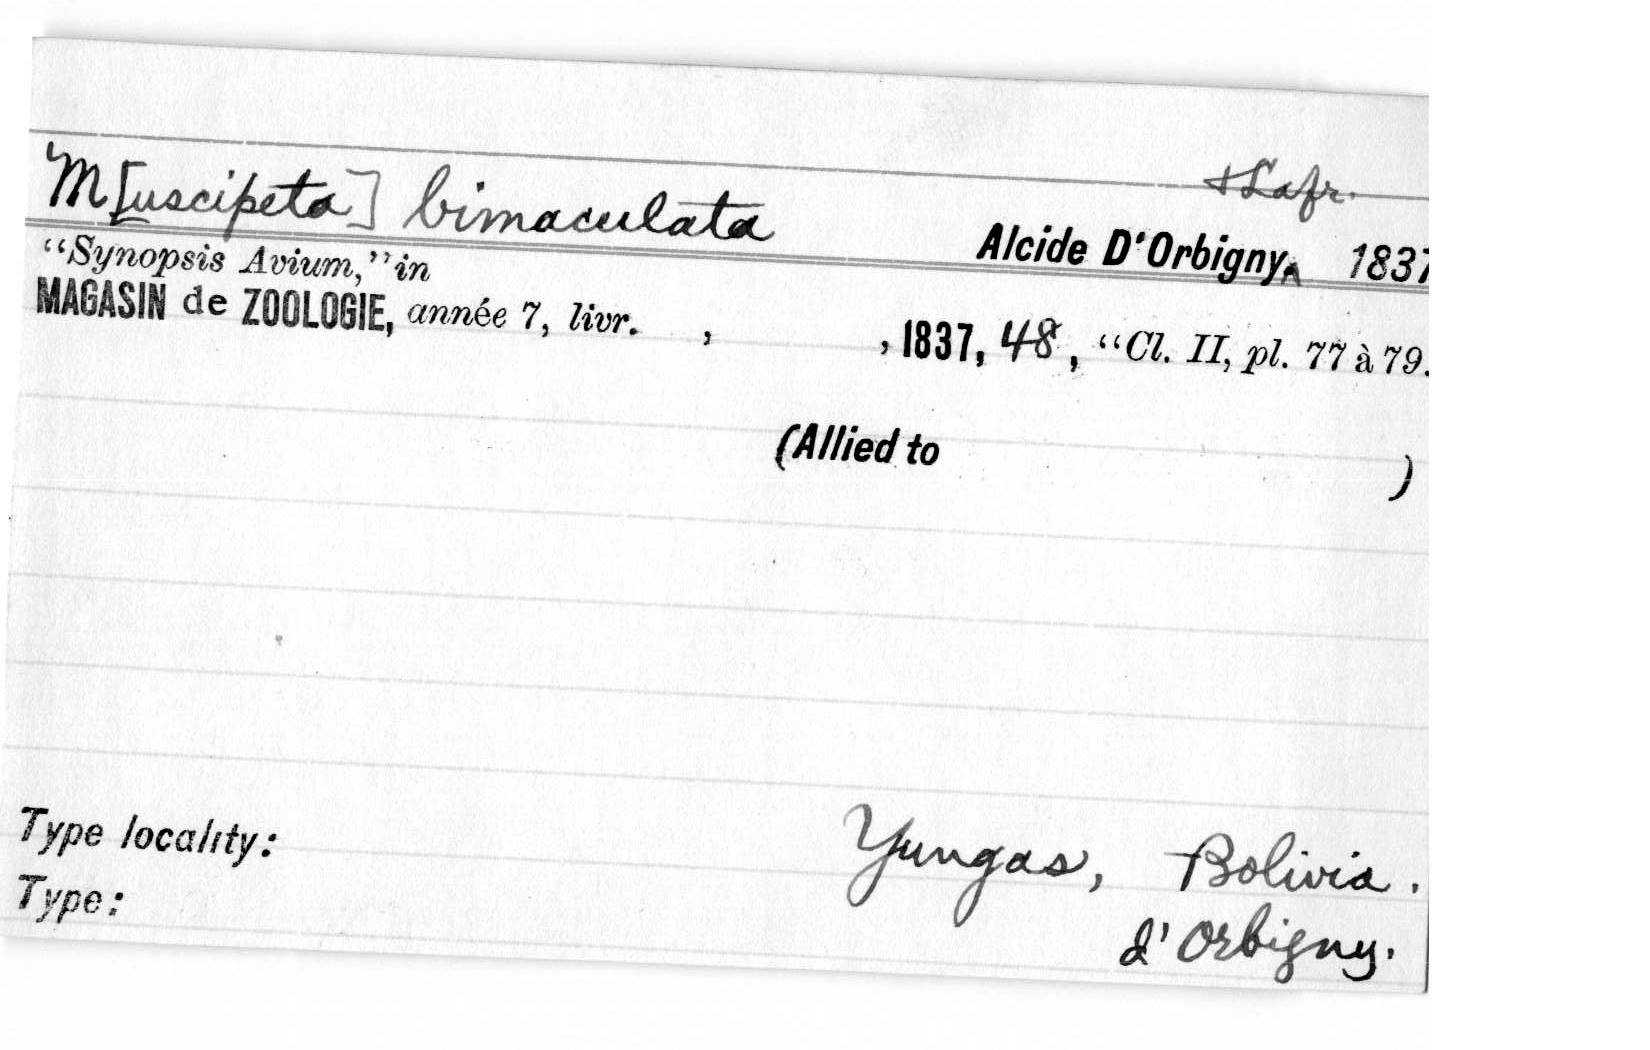 & Lafr.
M[uscipeta] bimaculata Alcide D'Orbigny^ 1837
“Synopsis Avium,” in
MAGASIN de ZOOLOGIE, année 7, livr. , , 1837, 48, “Cl. II, pl. 77 à 79.
(Allied to )
Type locality: Yungas, Bolivia.
Type: d'Orbigny.